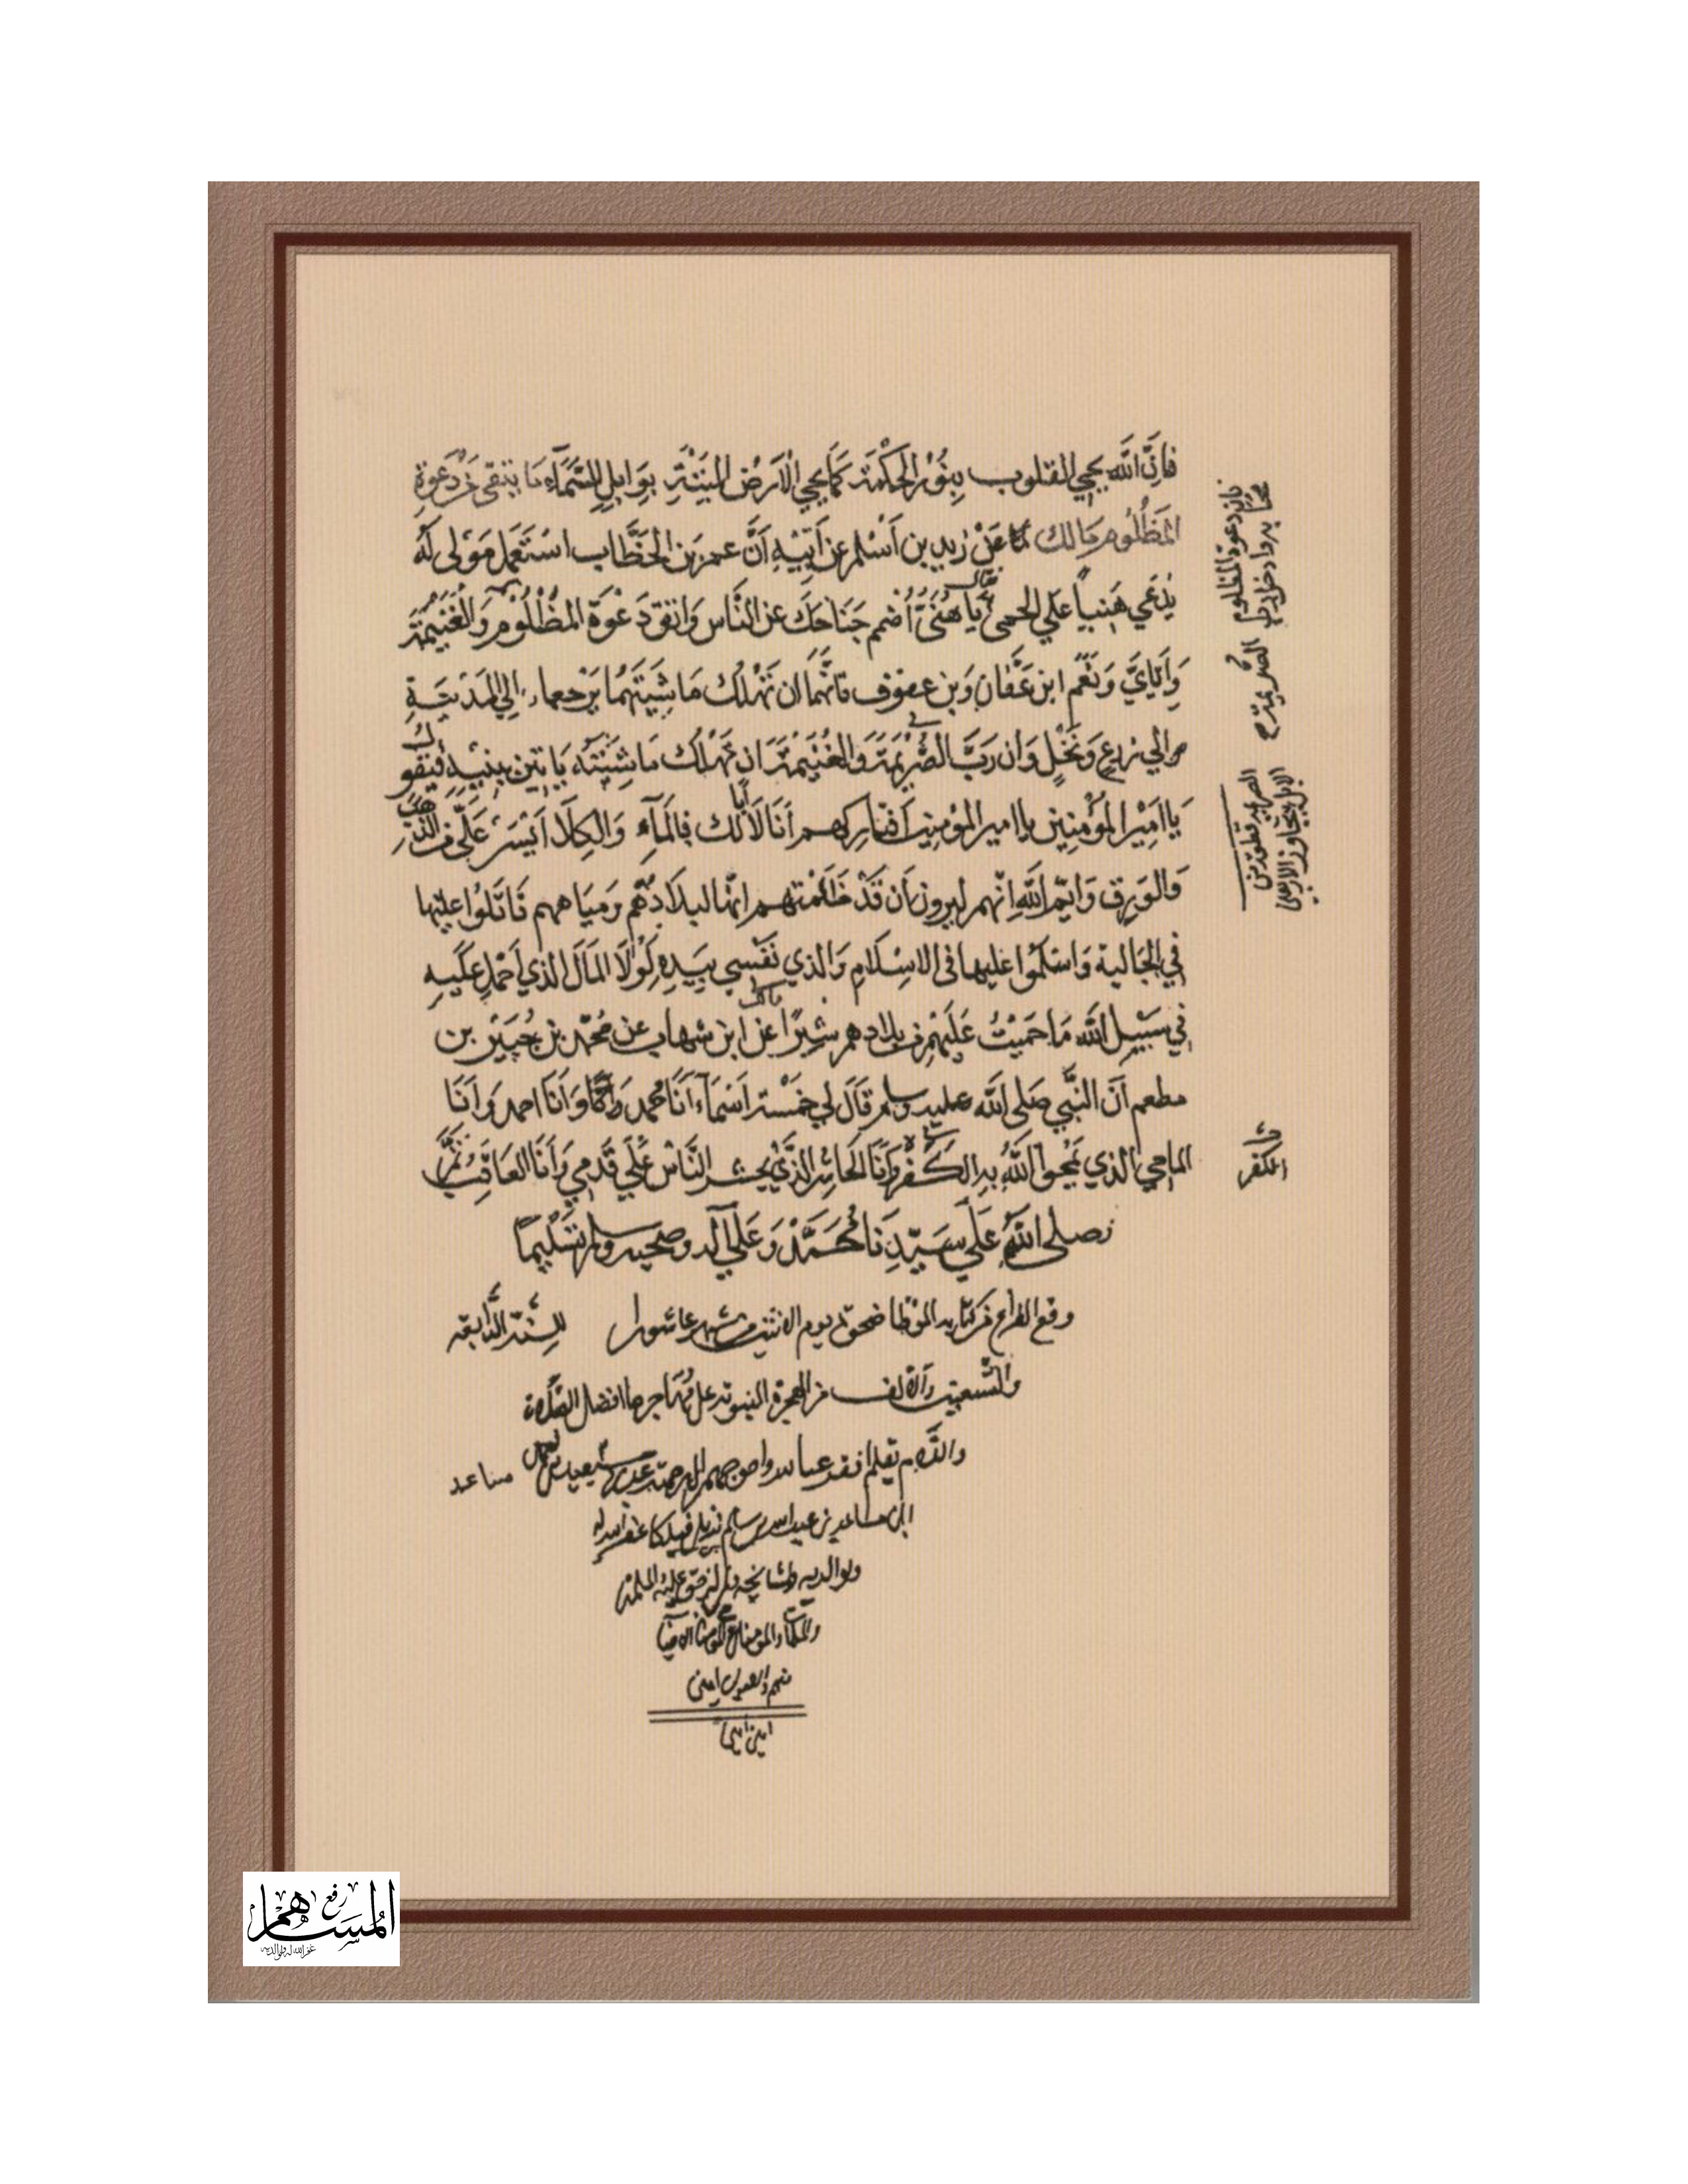 فَإِنَّ اللَّه يحيي القلوب بِنُوْرِ الحِكْمَةِ كَمَا يحيي الْأَرْضَ المَيْتَةِ بِوَابِلِ السَّمَآءِ مَا يتقى مِنْ دَعْوَةِ
المَظْلُومِ مَالك عَنْ زيد بن أَسْلم عن أَبِيْهِ أَنَّ عمر بْنِ الخَطَّاب اسْتَعْمَل مَوْلى لَهُ
يدعي هَنياً عَلي الحمى
قال
يَا هُنَيُّ أُضْمم جَنَاحَكَ عن النَّاس وَاتق دَعْوَةَ المَظْلُوْم وَالغُنَيْمَة
وَإِيَّايَ وَنَعَم ابن عَفَّان وَبن عفوف فانَّهما ان تَهْلك مَا شِيَتهُمَا يَرْجعاء الي المَدينَةِ
الي زرعٍ وَنَخْلٍ وَان رَبَّ الصُّرَيْمَةِ وَالغُنَيْمَة ان تَهْلك مَاشِيَته يَا تين ببنيهِ فيقول
يَا امِيْرَ المُؤمِنِين يا امير المؤمنين أفتاركهم أنَا لَا أبا لك فالمَآءِ وَالكِلَا أَيْسَر عَلَيّ من الذهب
وَالوَرِق وَايْم اللَّهِ انّهم ليرون أن قَدْ ظَلَمْتهم انها لبلادهُم وَميَاههم قَاتَلُوا عليها
في الجَالية وَاسْلَمُوا عَليها في الاسِلَام وَالذي نَفْسِي بيَدِهِ لَوْلَا المَال الذي احْمل عَلَيهِ
في سَبيْل اللَّه مَا حَمَيْتُ عَلَيْهم من بلادهم شِبْرًا
مالك
عَن ابن شهاب عن مُحمّد بن جُبَيْر بن
مطعم أَنّ النَّبي صَلى اللَّه عليه وسلم قَالَ لِي خَمْسَة أَسْمَآء أَنَا مُحمد وَأَنَا احمد وَأنَا
المَاحِي الذي يَمْحوا اللَّهُ بهِ الكُفْر وَأنَا الحَاشِر الذَّي يحشر النَّاس عَلَي قَدَمِي وَأَنَا العَاقِبُ تَمَّ
وصلى اللَّه عَلَي سَيّدِنَا مُحَمَّدْ وَعَلَي آله وصحبه وسلم تَسْلِيماً
وقع الفراغ من كتابه الموْطا ضحوة يوم الاثنين من شهر عاشورا للسَّنة الرَّابعة
والتسعين والألف من الهجرة النبوية على مُهَاجرها افضل الصَّلاة
والسلام بقلم افقر عباد الله واحوجهم الى رحمته
ابن مساعد بن عبد الله بن سالم
ولوالديه ولمشائخه
امين
فَإن دعوة المظلوم
الصُّرَيمَة
الكفر
المساهم
رفع
غفر الله له ولوالديه